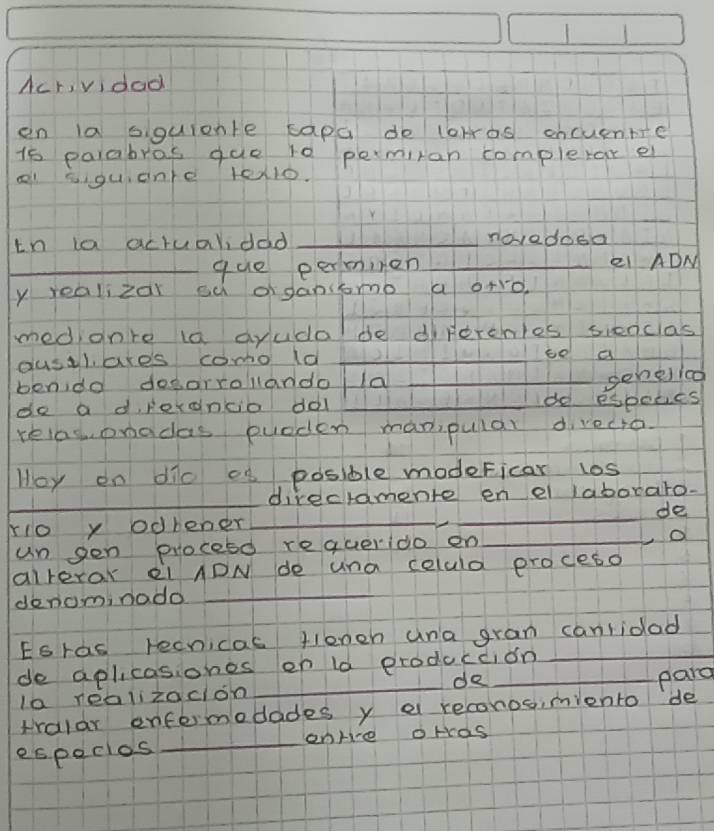 Actividad
en la siguiente sapa de letras encuentre
ls palabras que to permitan completar el
el siguiente texto.
En la actualidad ____________ novedosa
____________ que permiten ____________ el ADN
y realizar su organismo a otro.
medionte la ayuda de diferentes siencias
ausiliares como la ____________ se a
benido desarrollando la ____________ genetico
de a diferencia del ____________ de especies
relasionadas pueden manipular directa.
Hoy en dia es posible modeficar los
____________ directamente en el laborato-
rio y odtener ____________ - ____________ de
un gen proceso requerido en ____________, o
alterar el ADN de una celula proceso
denominado ____________
Estas tecnicas tienen una gran cantidad
de aplicasiones en la producción ____________
la realización ____________ de ____________ para
tratar enfermedades y el reconosimiento de
especios ____________ entre otras